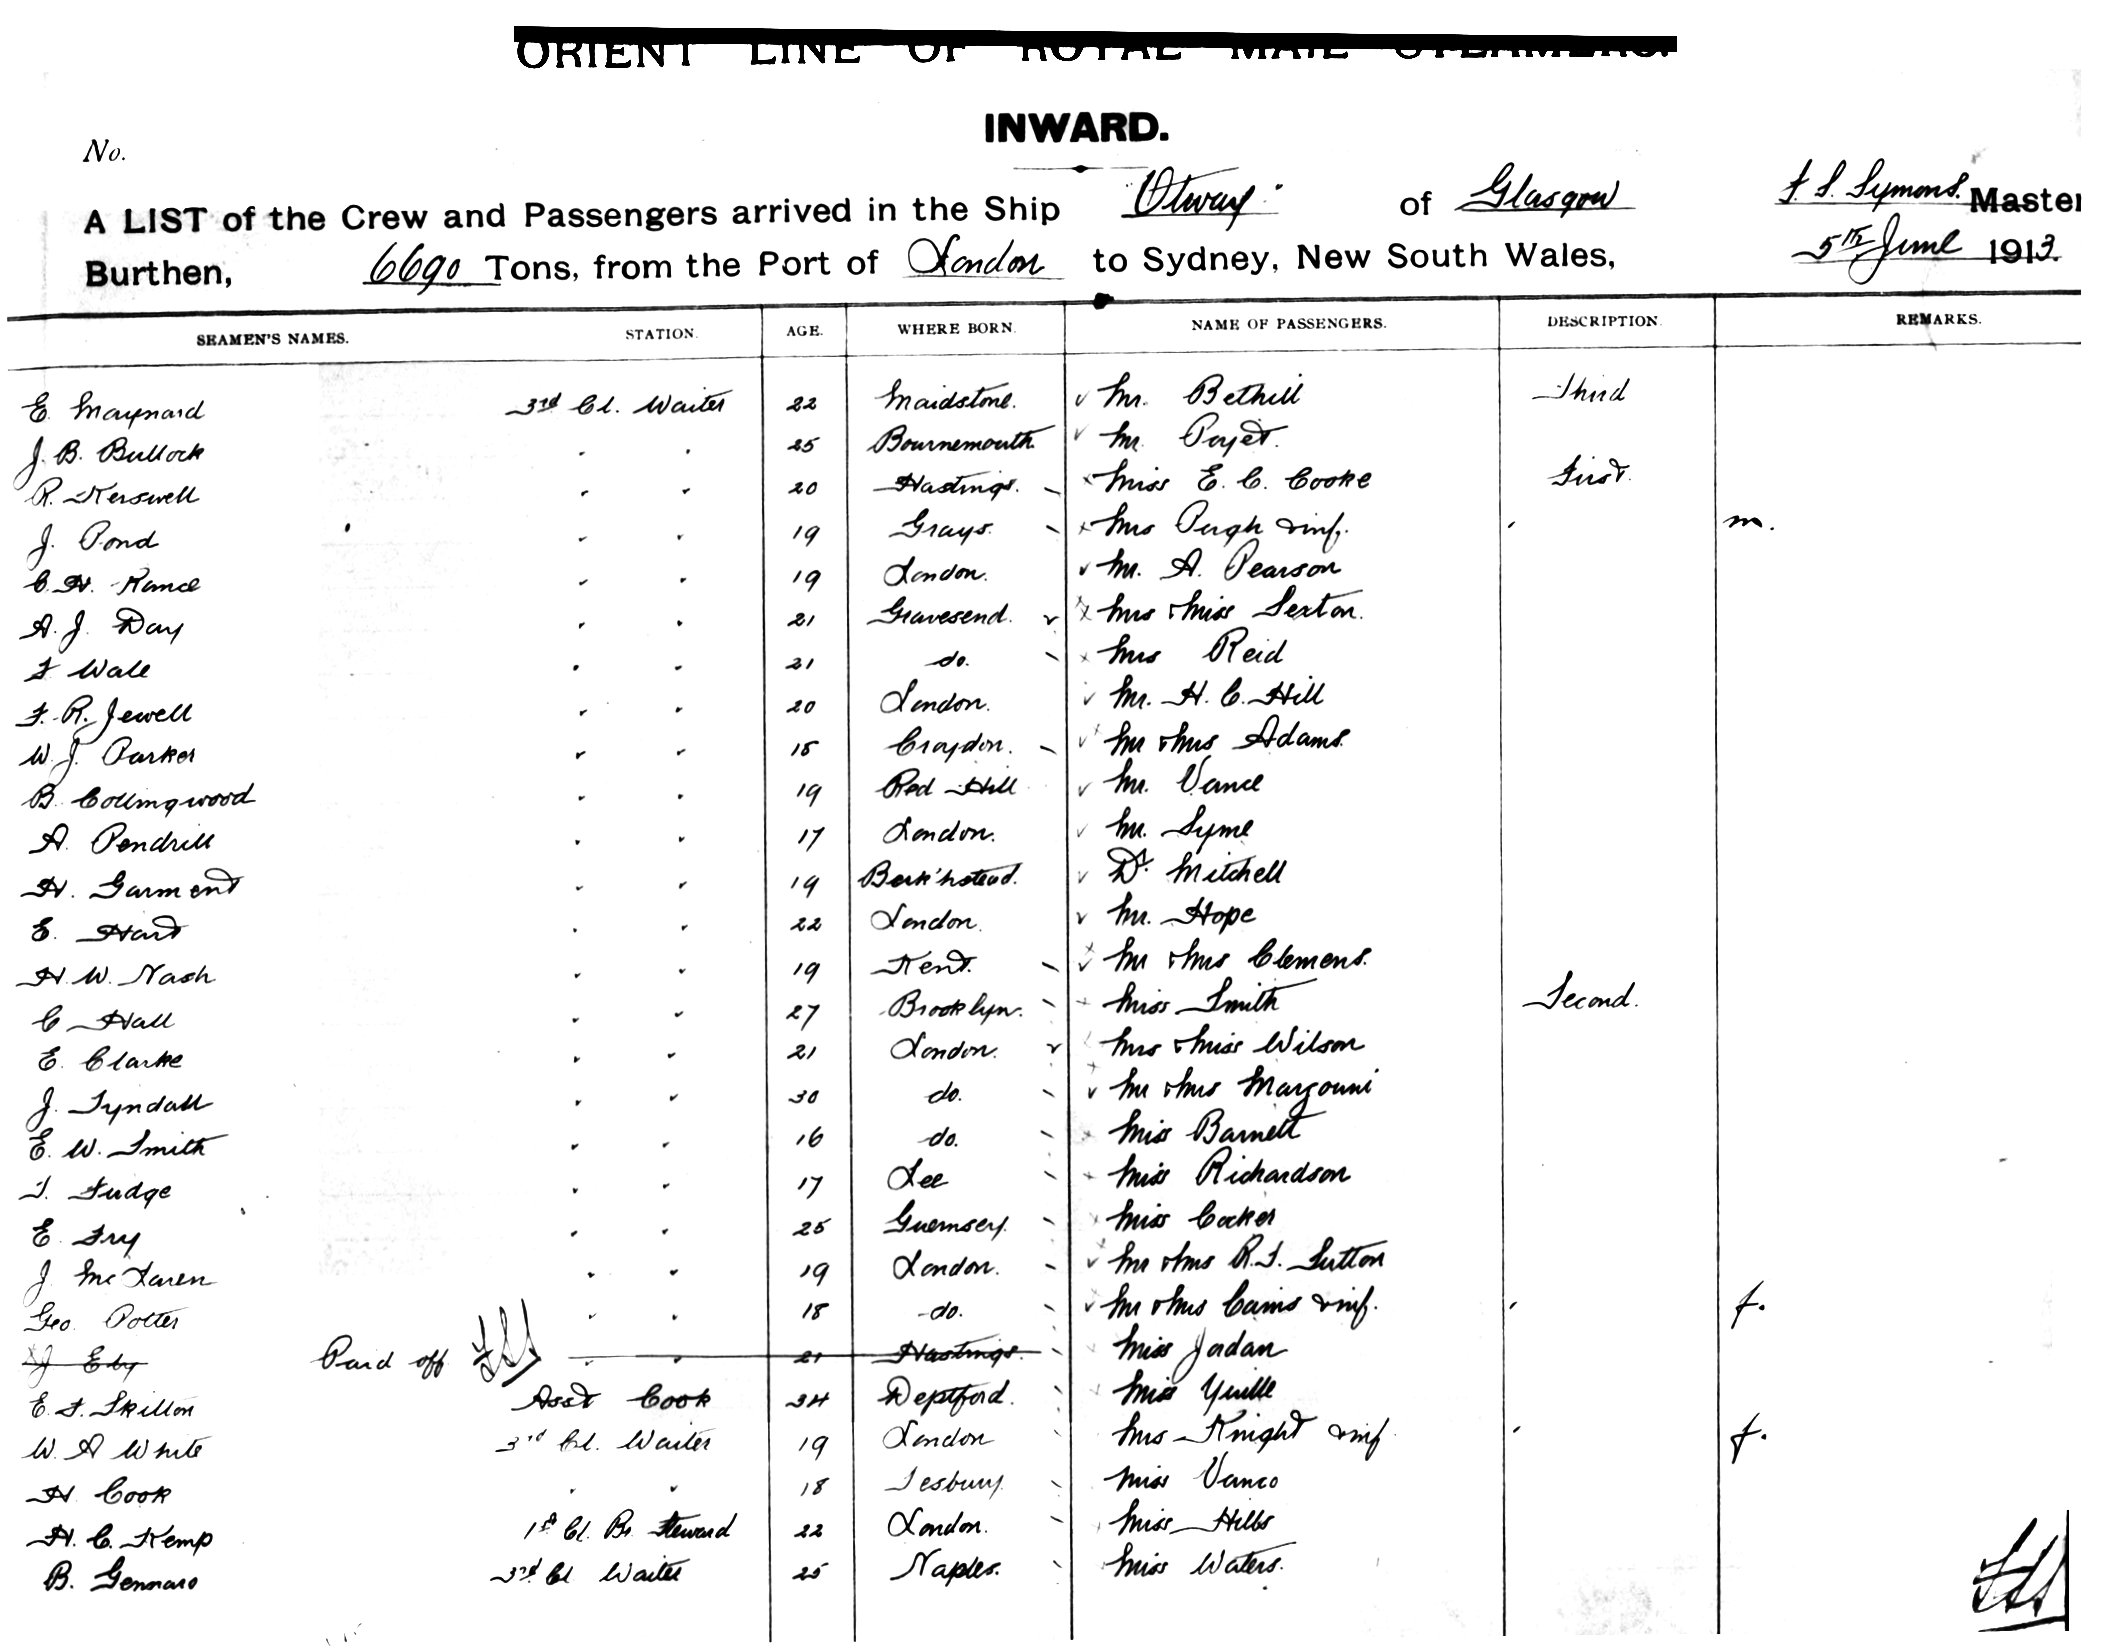 ORIENT LINE OF ROYAL MAIL STEAMERS.
INWARD.
No.
A LIST of the Crew and Passengers arrived in the Ship "Otway" of Glasgow F. S. Symons. Master
Burthen, 6690 Tons, from the Port of London to Sydney, New South Wales, 5th June 1913.
SEAMEN'S NAMES. STATION. AGE. WHERE BORN. NAME OF PASSENGERS. DESCRIPTION. REMARKS.
E. Maynard 3rd Cl. Waiter 22 Maidstone. Mr. Bethill Third
J. B. Bullock " " 25 Bournemouth. Mr. Paget.
R. Kerswell " " 20 Hastings. Miss E. C. Cooke First.
J. Pond " " 19 Grays. Mrs Pugh & inf. " m.
C. H. Rance " " 19 London. Mr. A. Pearson
A. J. Day " " 21 Gravesend. Mrs & Miss Sexton.
F Wale " " 21 do. Mrs Reid
F. R. Jewell " " 20 London. Mr. H. C. Hill
W. J. Parker " " 18 Croydon. Mr & Mrs Adams.
B. Collingwood " " 19 Red Hill Mr. Vance
A. Pendrill " " 17 London. Mr. Syme
H. Garment " " 19 Berk'hstead. Dr. Mitchell
E. Hart " " 22 London. Mr. Hope
H. W. Nash " " 19 Kent. Mr & Mrs Clemens.
C Hall " " 27 Brooklyn. Miss Smith Second.
E. Clarke " " 21 London. Mrs & Miss Wilson
J. Tyndall " " 30 do. Mr & Mrs Margouni
E. W. Smith " " 16 do. Miss Barnett
T. Fudge " " 17 Lee Miss Richardson
E. Fry " " 25 Guernsey. Miss Cocker
J McLaren " " 19 London. Mr & Mrs R. T. Sutton
Geo. Potter " " 18 do. Mr & Mrs Cains & inf. " f.
J Ely Paid off FSS " " 21 Hastings. Miss Jadan
E. F. Skilton Asst Cook 34 Deptford. Miss Yuille
W. A White 3rd Cl. Waiter 19 London Mrs Knight & inf " f.
H Cook " " 18 Tesbury. Miss Vanco
H. C. Kemp 1st Cl. Br. Steward 22 London. Miss Hills
B. Gennaro 3rd Cl Waiter 25 Naples. Miss Waters.
FSS